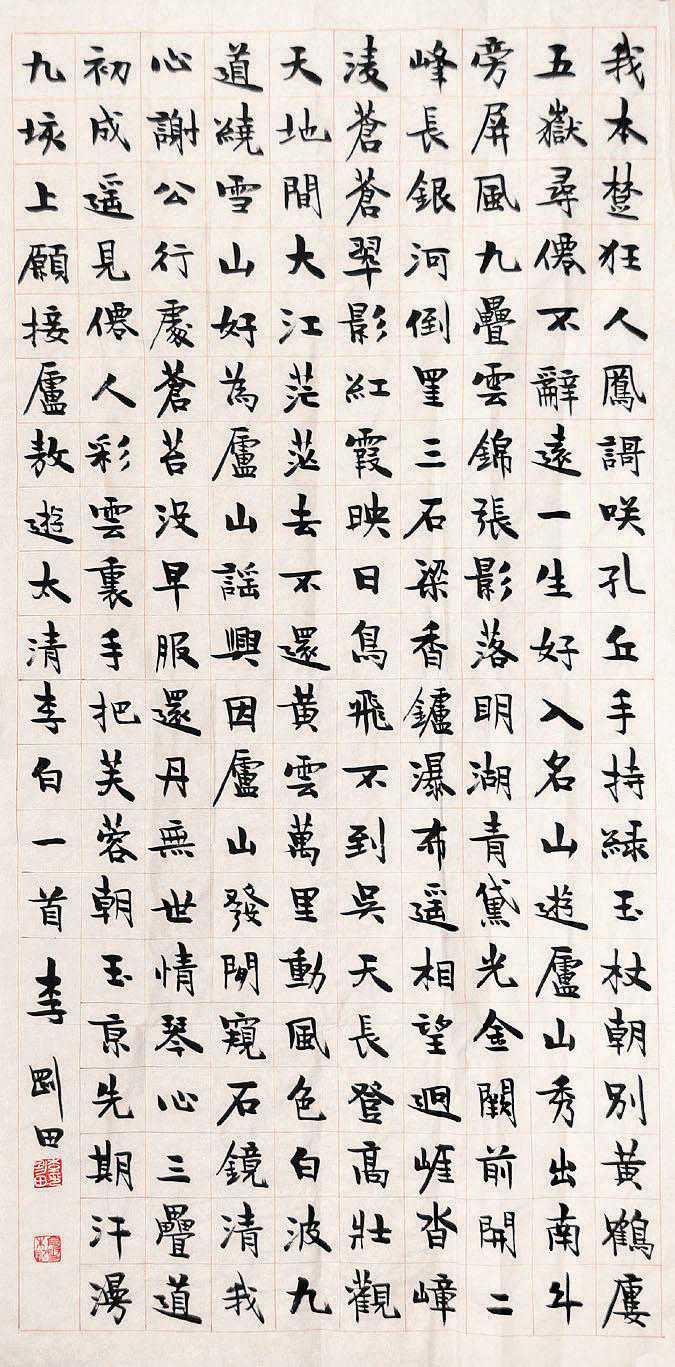 我本楚狂人鳳謌咲孔丘手持緑玉杖朝別黃鶴廔
五嶽尋僊不辭遠一生好入名山遊廬山秀出南斗
旁屏風九疊雲錦張影落明湖青黛光金闕前開二
峰長銀河倒罣三石梁香鑪瀑布遥相望迴崕沓嶂
淩蒼蒼翠影紅霞映日鳥飛不到吳天長登高壯觀
天地間大江茫茫去不還黃雲萬里動風色白波九
道繞雪山好為廬山謠興因廬山發閒窺石鏡清我
心謝公行處蒼苔沒早服還丹無世情琴心三疊道
初成遥見僊人彩雲裏手把芙蓉朝玉京先期汗漫
九垓上願接廬敖遊太清李白一首李剛田